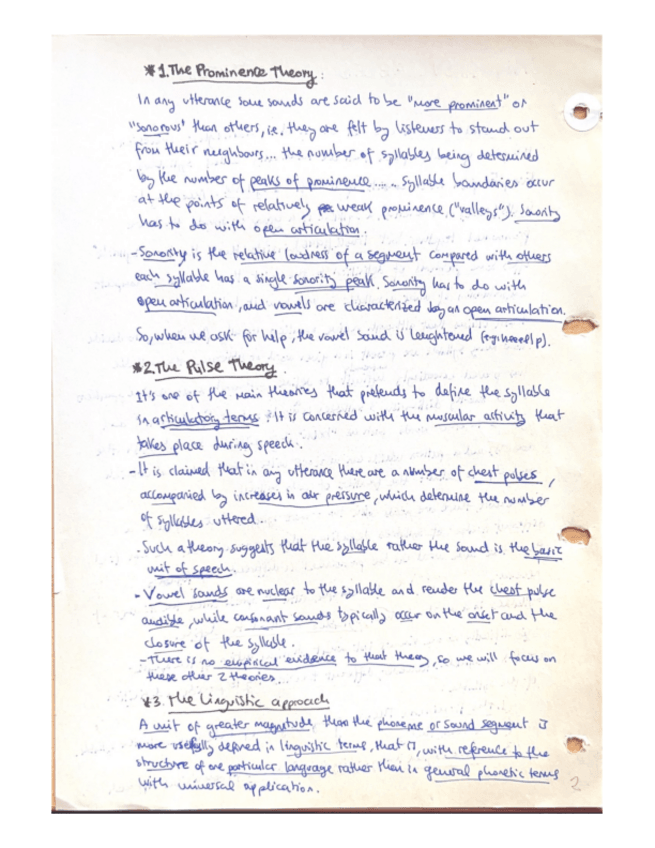 * 1. The Prominence Theory:
In any utterance some sounds are said to be "more prominent" or
"sonorous" than others, i.e. they are felt by listeners to stand out
from their neighbours... the number of syllables being determined
by the number of peaks of prominence..... Syllable boundaries occur
at the points of relatively weak prominence ("valleys"). Sonority
has to do with open articulation.
- Sonority is the relative loudness of a segment compared with others
each syllable has a single sonority peak. Sonority has to do with
open articulation, and vowels are characterized by an open articulation.
So, when we ask for help, the vowel sound is lenghtened
* 2. The Pulse Theory.
It's one of the main theories that pretends to define the syllable
in articulatory terms. It is concerned with the muscular activity that
takes place during speech.
- It is claimed that in any utterance there are a number of chest pulses,
accompanied by increases in air pressure, which determine the number
of syllables uttered.
- Such a theory suggests that the syllable rather the sound is the basic
unit of speech.
- Vowel sounds are nuclear to the syllable and render the chest pulse
audible, while consonant sounds typically occur on the onset and the
closure of the syllable.
- There is no empirical evidence to that theory, so we will focus on
these other 2 theories.
* 3. The Linguistic approach
A unit of greater magnitude than the phoneme or sound segment is
more usefully defined in linguistic terms, that is, with reference to the
structure of one particular language rather than in general phonetic terms
with universal application.
2